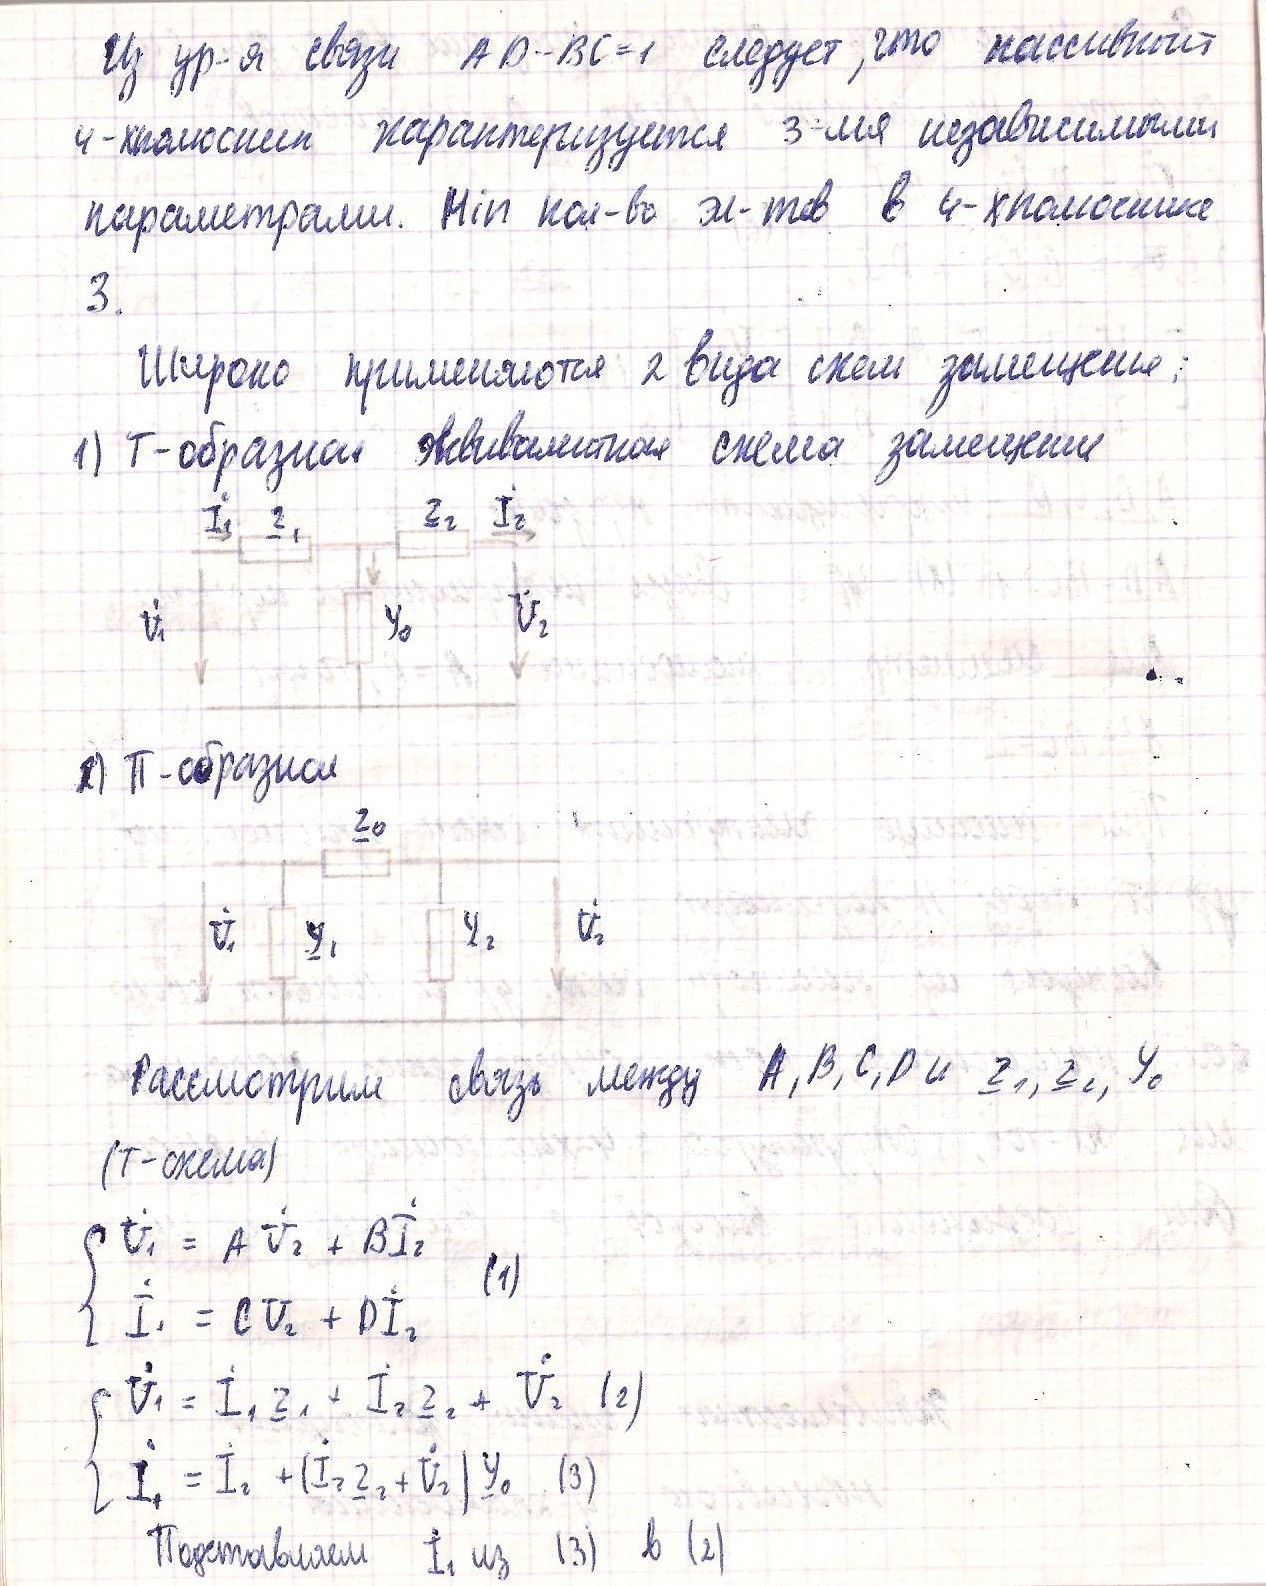 Из ур-я связи AD-BC=1 следует, что пассивный
4-хполюсник характеризуется 3-мя независимыми
параметрами. Min кол-во эл-тов в 4-хполюснике
3.
Широко применяются 2 вида схем замещения:
1) Т-образная эквивалентная схема замещения
İ₁ Z₁ Z₂ İ₂
U̇₁ Y₀ U̇₂
2) П-образная
Z₀
U̇₁ Y₁ Y₂ U̇₂
Рассмотрим связь между A, B, C, D и Z₁, Z₂, Y₀
(Т-схема)
U̇₁ = A U̇₂ + B İ₂
İ₁ = C U̇₂ + D İ₂ (1)
U̇₁ = İ₁ Z₁ + İ₂ Z₂ + U̇₂ (2)
İ₁ = İ₂ + (İ₂ Z₂ + U̇₂) Y₀ (3)
Подставляем İ₁ из (3) в (2)